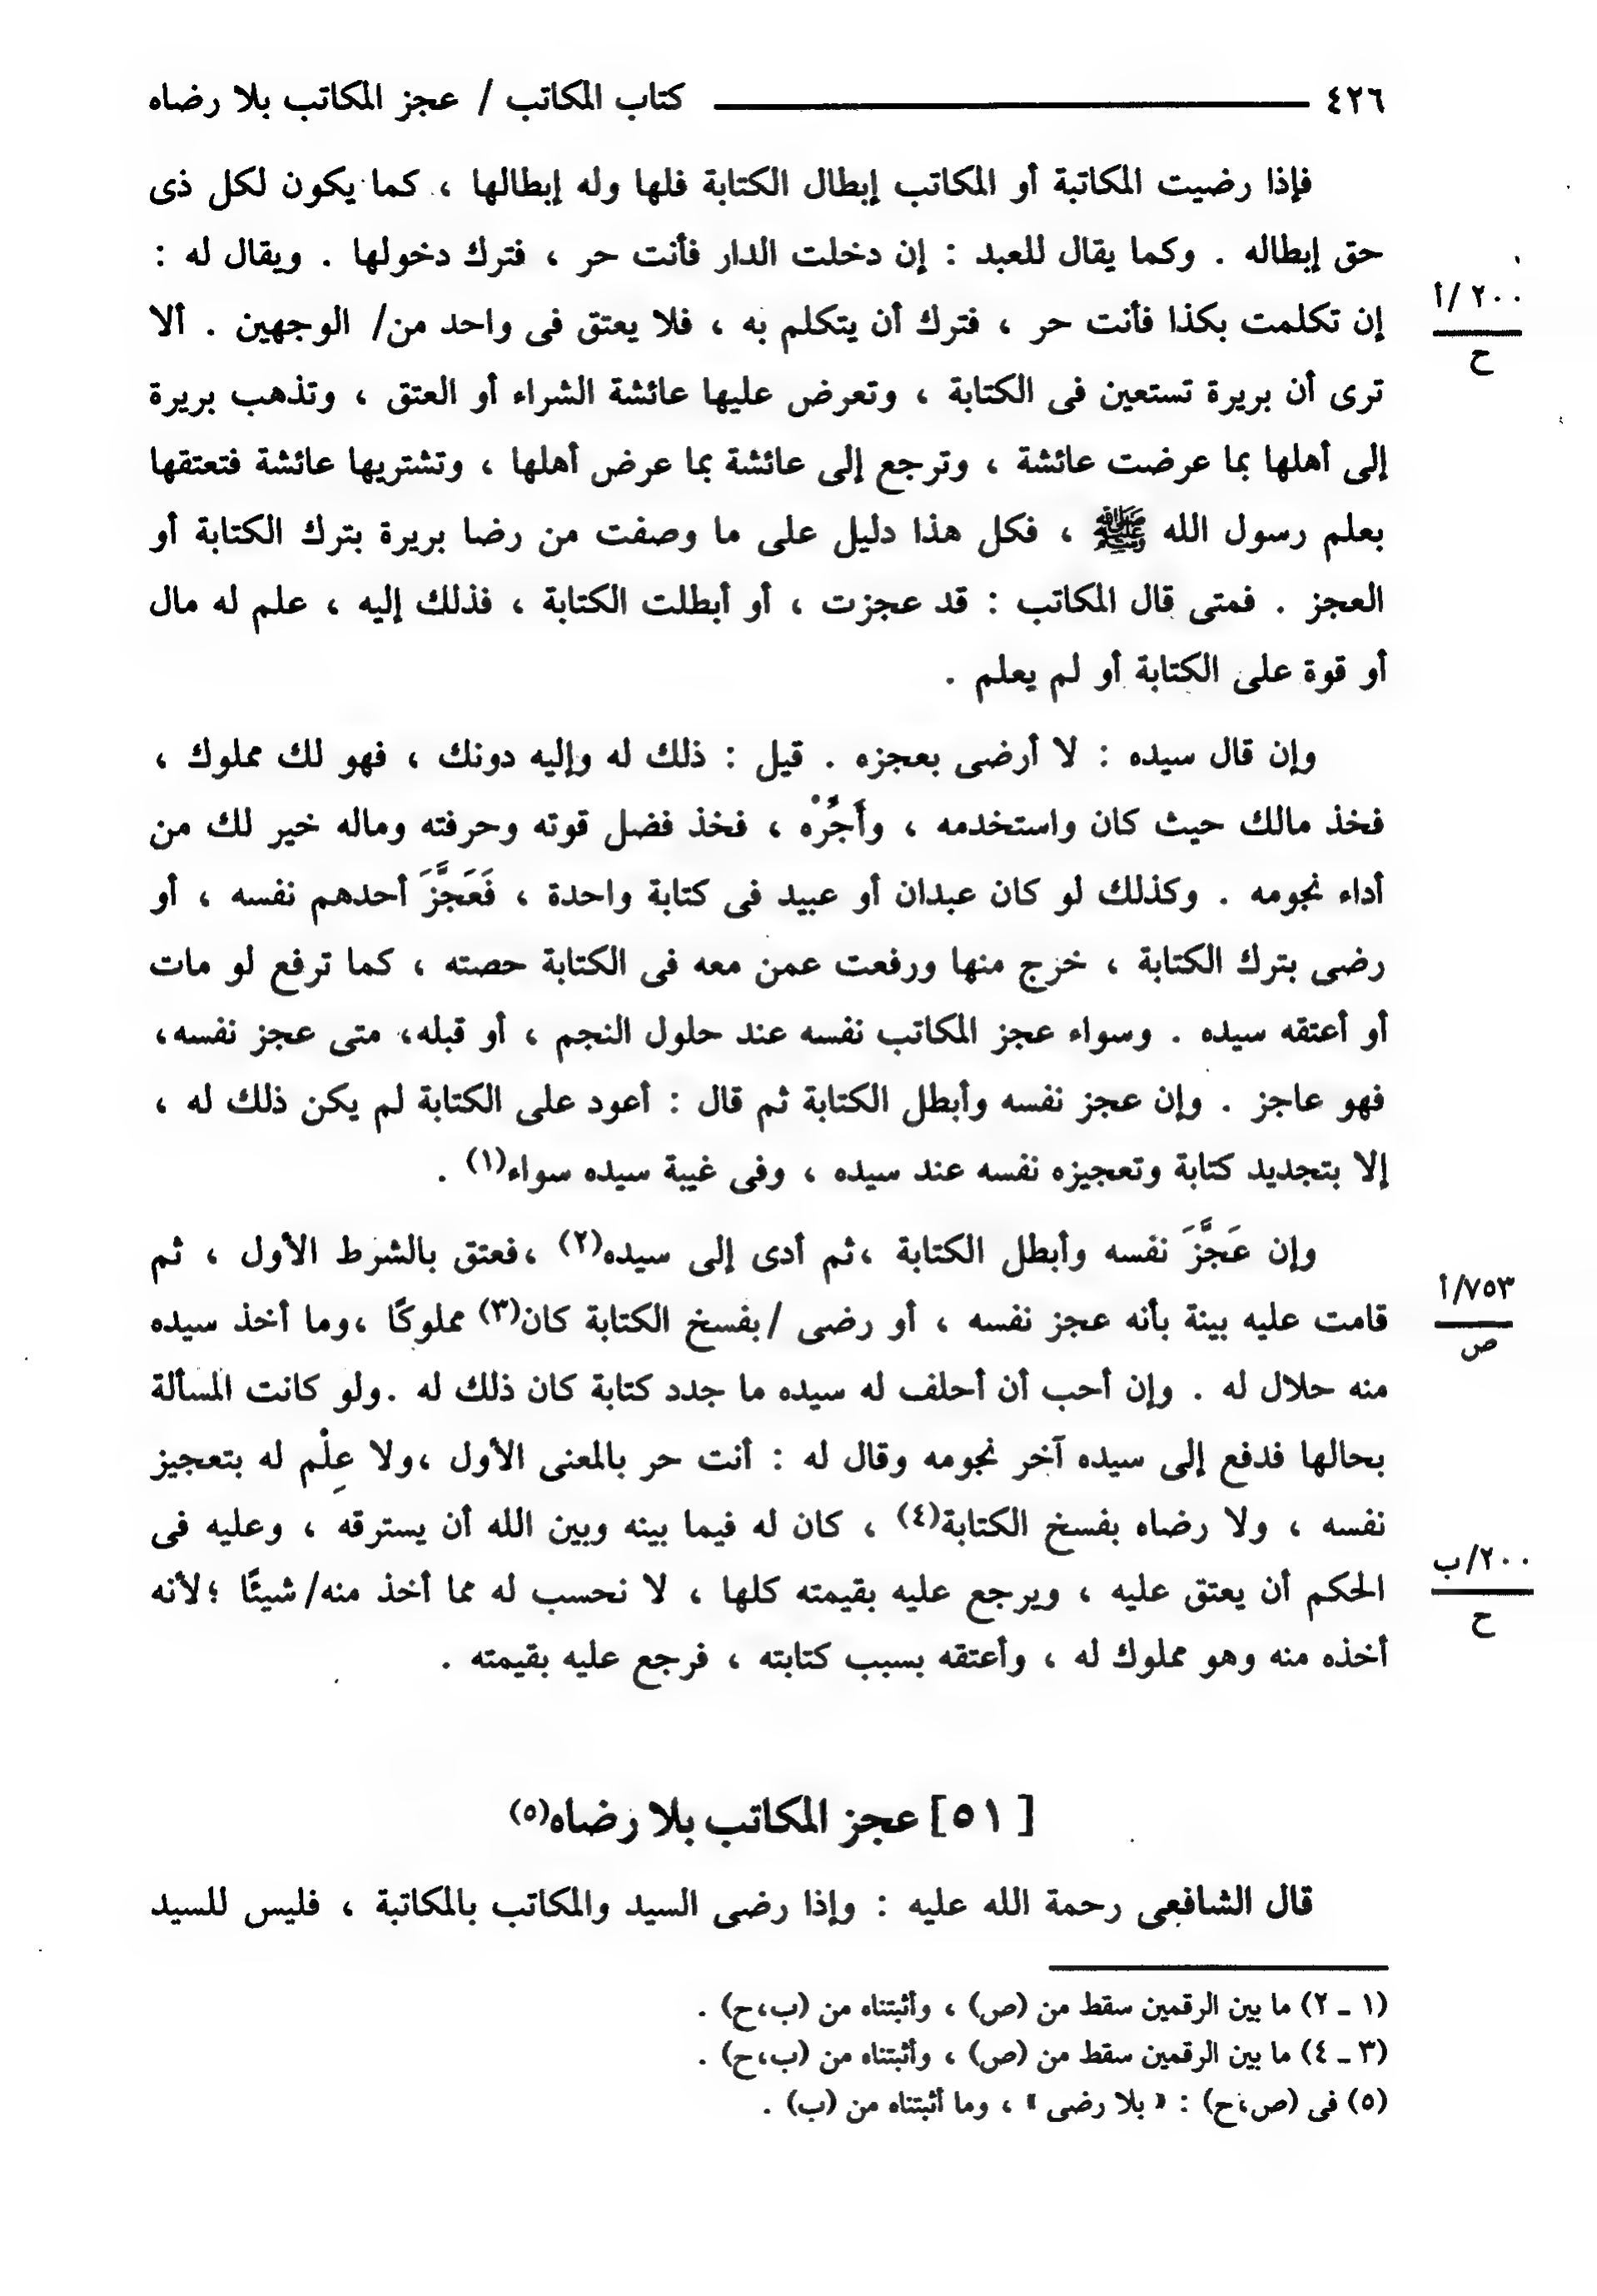 ٤٢٦ كتاب المكاتب / عجز المكاتب بلا رضاه
فإذا رضيت المكاتبة أو المكاتب إبطال الكتابة فلها وله إبطالها ، كما يكون لكل ذى
حق إبطاله . وكما يقال للعبد : إن دخلت الدار فأنت حر ، فترك دخولها . ويقال له :
إن تكلمت بكذا فأنت حر ، فترك أن يتكلم به ، فلا يعتق فى واحد من/ الوجهين . ألا
٢٠٠ /أ
ح
ترى أن بريرة تستعين فى الكتابة ، وتعرض عليها عائشة الشراء أو العتق ، وتذهب بريرة
إلى أهلها بما عرضت عائشة ، وترجع إلى عائشة بما عرض أهلها ، وتشتريها عائشة فتعتقها
بعلم رسول الله ﷺ ، فكل هذا دليل على ما وصفت من رضا بريرة بترك الكتابة أو
العجز . فمتى قال المكاتب : قد عجزت ، أو أبطلت الكتابة ، فذلك إليه ، علم له مال
أو قوة على الكتابة أو لم يعلم .
وإن قال سيده : لا أرضى بعجزه . قيل : ذلك له وإليه دونك ، فهو لك مملوك ،
فخذ مالك حيث كان واستخدمه ، وأَجِّرْه ، فخذ فضل قوته وحرفته وماله خير لك من
أداء نجومه . وكذلك لو كان عبدان أو عبيد فى كتابة واحدة ، فَعَجَّزَ أحدهم نفسه ، أو
رضى بترك الكتابة ، خرج منها ورفعت عمن معه فى الكتابة حصته ، كما ترفع لو مات
أو أعتقه سيده . وسواء عجز المكاتب نفسه عند حلول النجم ، أو قبله، متى عجز نفسه،
فهو عاجز . وإن عجز نفسه وأبطل الكتابة ثم قال : أعود على الكتابة لم يكن ذلك له ،
إلا بتجديد كتابة وتعجيزه نفسه عند سيده ، وفى غيبة سيده سواء(١) .
وإن عَجَّزَ نفسه وأبطل الكتابة ،ثم أدى إلى سيده(٢) ،فعتق بالشرط الأول ، ثم
قامت عليه بينة بأنه عجز نفسه ، أو رضى /بفسخ الكتابة كان(٣) مملوكًا ،وما أخذ سيده
٧٥٣/أ
ص
منه حلال له . وإن أحب أن أحلف له سيده ما جدد كتابة كان ذلك له .ولو كانت المسألة
بحالها فدفع إلى سيده آخر نجومه وقال له : أنت حر بالمعنى الأول ،ولا عِلْم له بتعجيز
نفسه ، ولا رضاه بفسخ الكتابة(٤) ، كان له فيما بينه وبين الله أن يسترقه ، وعليه فى
الحكم أن يعتق عليه ، ويرجع عليه بقيمته كلها ، لا نحسب له مما أخذ منه/ شيئًا ؛لأنه
٢٠٠/ب
ح
أخذه منه وهو مملوك له ، وأعتقه بسبب كتابته ، فرجع عليه بقيمته .
[٥١] عجز المكاتب بلا رضاه(٥)
قال الشافعى رحمة الله عليه : وإذا رضى السيد والمكاتب بالمكاتبة ، فليس للسيد
(١ ـ ٢) ما بين الرقمين سقط من (ص) ، وأثبتناه من (ب،ح) .
(٣ ـ ٤) ما بين الرقمين سقط من (ص) ، وأثبتناه من (ب،ح) .
(٥) فى (ص،ح) : « بلا رضى » ، وما أثبتناه من (ب) .